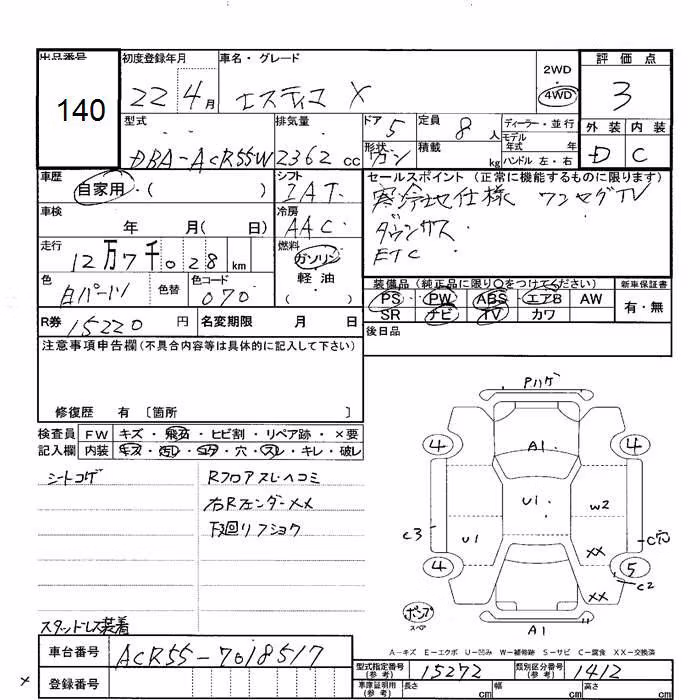 出品番号
140
初度登録年月
22 4月
車名・グレード
エスティマ X
2WD
4WD
評価点
3
外装 内装
D C
型式
DBA-ACR55W
排気量
2362 cc
ドア 5
定員 8人
形状 ワゴン
積載 kg
ディーラー・並行
モデル年式 年
ハンドル 左・右
車歴
自家用・( )
シフト
IAT
車検
年 月( 日)
冷房
AAC
走行
12万7千028km
燃料
ガソリン
軽油
( )
色
白パール
色替
色コード
070
R券 15220円
名変期限 月 日
セールスポイント(正常に機能するものに限ります)
寒冷地仕様 ワンセグTV
ダウンサス
ETC
装備品(純正品に限り○をつけてください)
PS PW ABS エアB AW
SR ナビ TV カワ
新車保証書
有・無
後日品
注意事項申告欄(不具合内容等は具体的に記入して下さい)
修復歴 有〔箇所 〕
検査員 FW キズ・飛石・ヒビ割・リペア跡・×要
記入欄 内装 キズ・汚レ・コゲ・穴・スレ・キレ・破レ
シートコゲ
Rフロアスレヘコミ
右Rフェンダー××
下廻リフショク
スタッドレス装着
Pハゲ
4
4
A1
U1
W2
C3
U1
C穴
××
4
5
C2
××
A1
ポンプ
スペア
A-キズ E-エクボ U-凹み W-補修跡 S-サビ C-腐食 XX-交換済
車台番号
ACR55-7018517
登録番号
型式指定番号(参考) 15272
類別区分番号(参考) 1412
車庫証明用(参考) 長さ cm 幅 cm 高さ cm
×